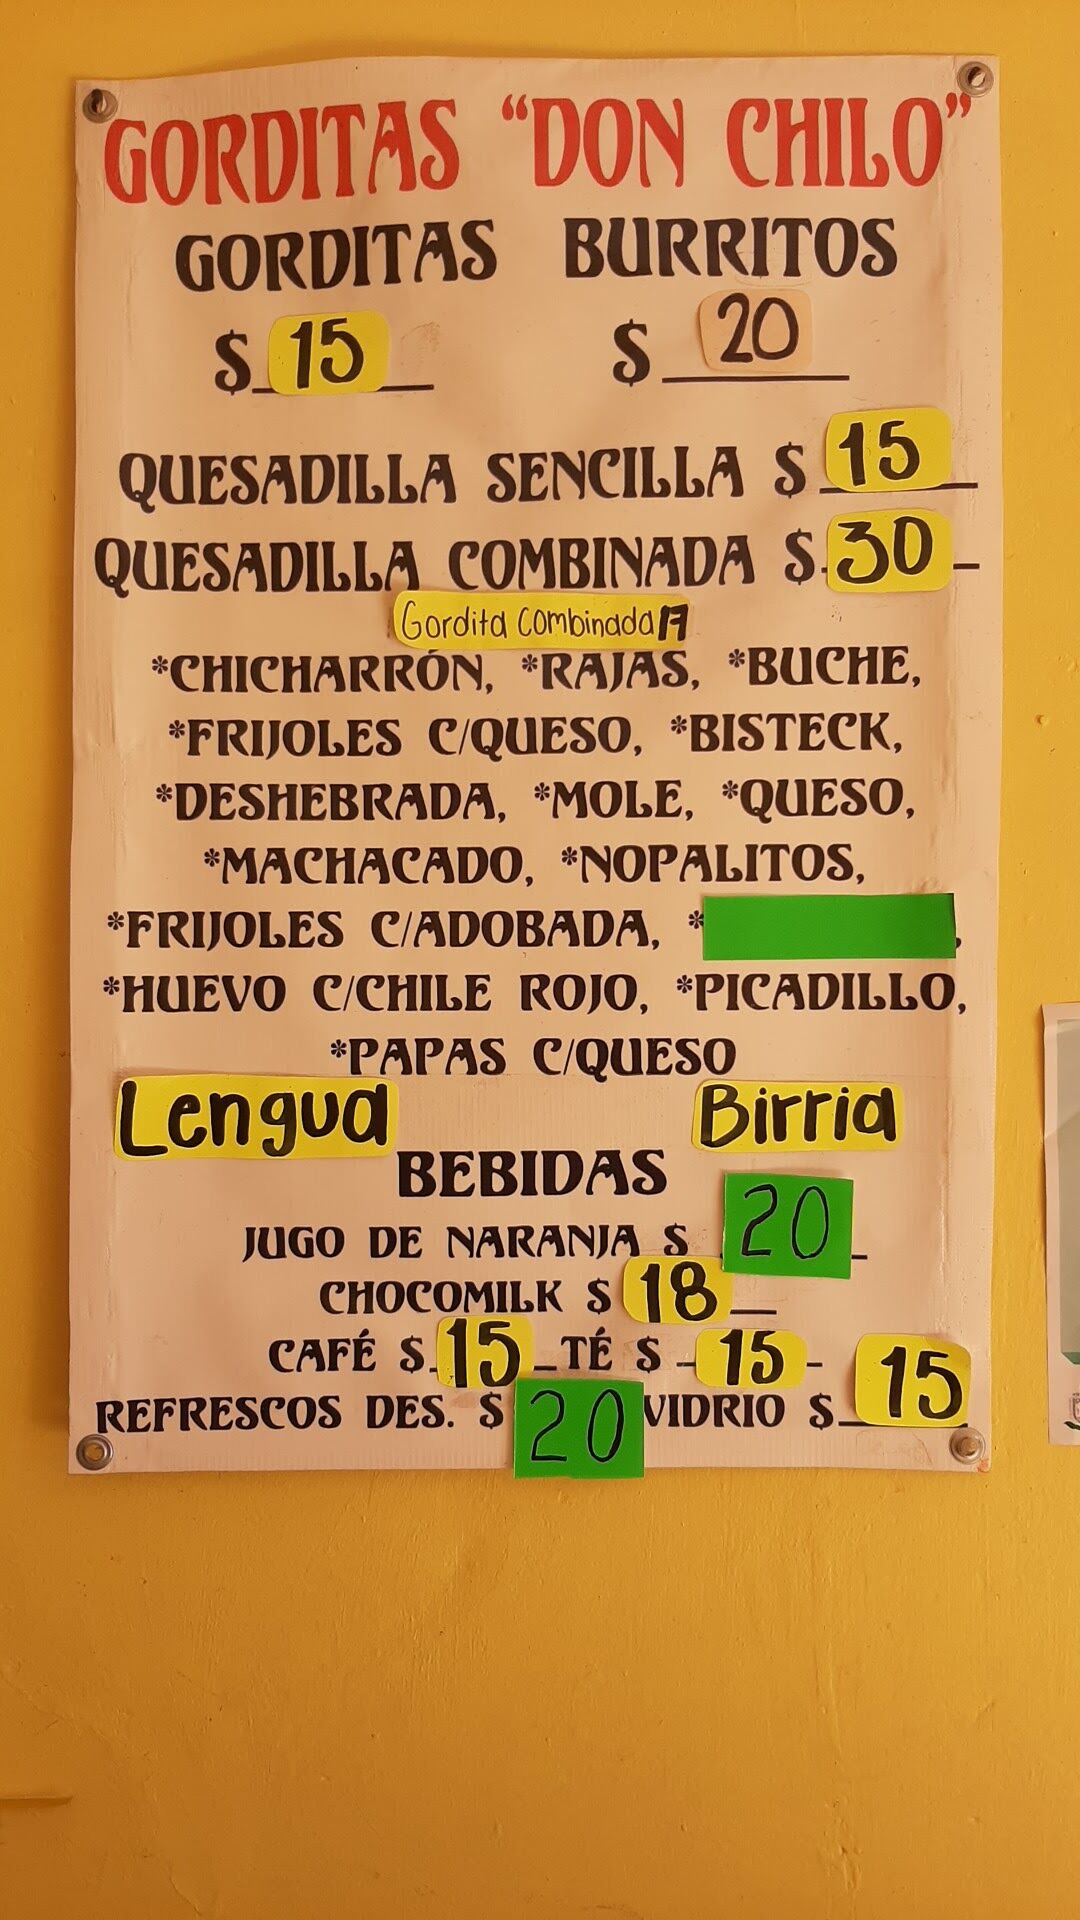 GORDITAS "DON CHILO"
GORDITAS BURRITOS
$ 15 $ 20
QUESADILLA SENCILLA $ 15
QUESADILLA COMBINADA $ 30
Gordita Combinada 17
*CHICHARRÓN, *RAJAS, *BUCHE,
*FRIJOLES C/QUESO, *BISTECK,
*DESHEBRADA, *MOLE, *QUESO,
*MACHACADO, *NOPALITOS,
*FRIJOLES C/ADOBADA, * ,
*HUEVO C/CHILE ROJO, *PICADILLO,
*PAPAS C/QUESO
Lengua Birria
BEBIDAS
JUGO DE NARANJA $ 20
CHOCOMILK $ 18
CAFÉ $ 15 TÉ $ 15
REFRESCOS DES. $ 20 VIDRIO $ 15